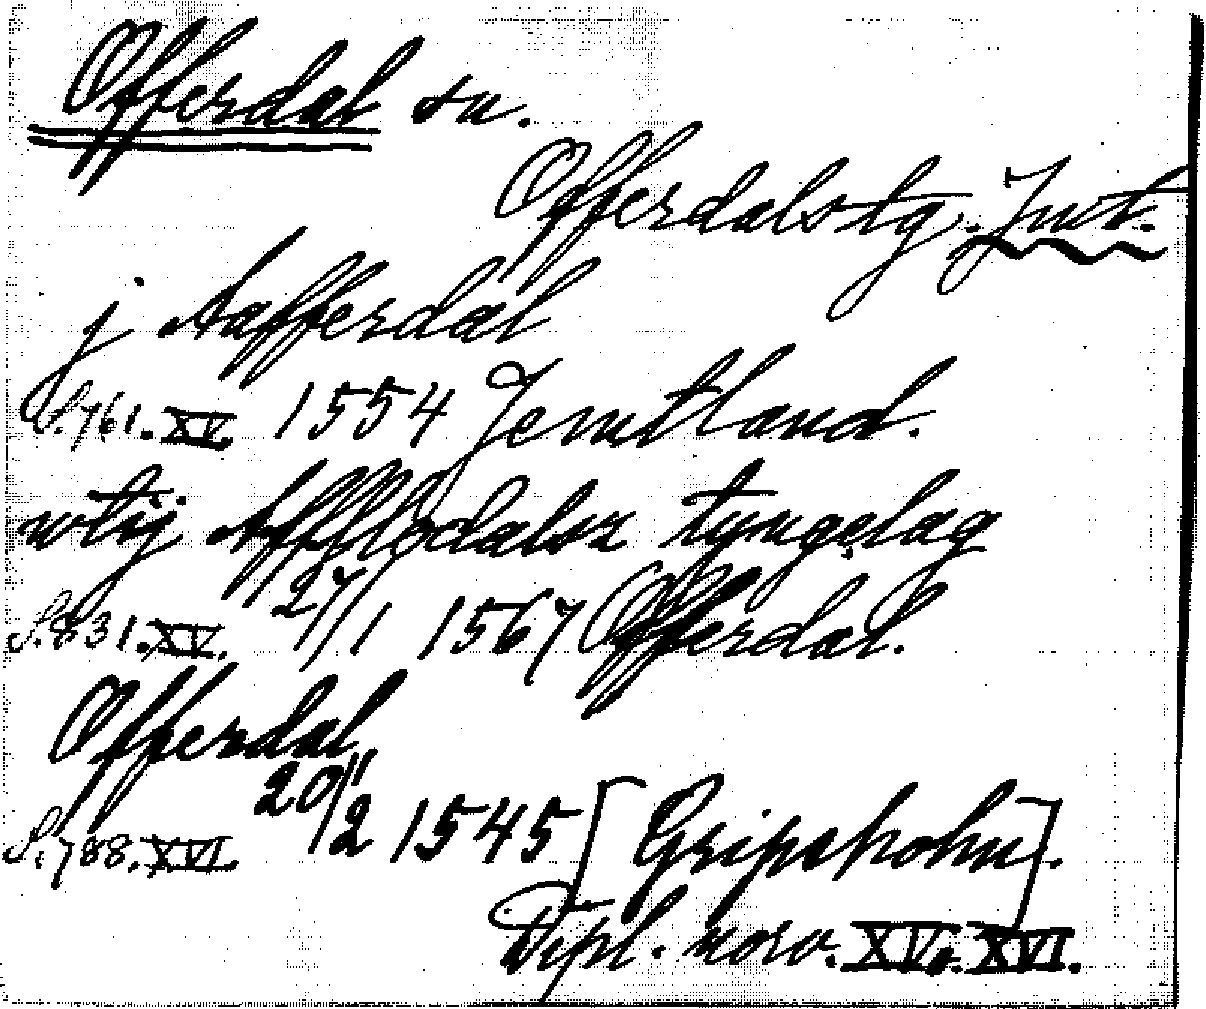 Offerdal sn.
Offerdals tg. Jmt.
j Aafferdal
S. 761. XV. 1554 Jemtland.
wtij Affledalsz tyngelag
S. 831. XV. 27/1 1567 Offerdal.
Offerdal
S. 788. XVI. 20/2 1545 [Gripsholm].
Dipl. norv. XV o. XVI.